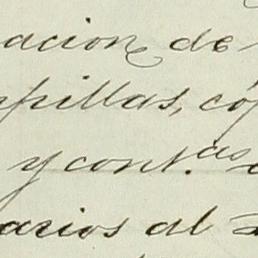 acion de
pillas, có
y cont.as
arios al